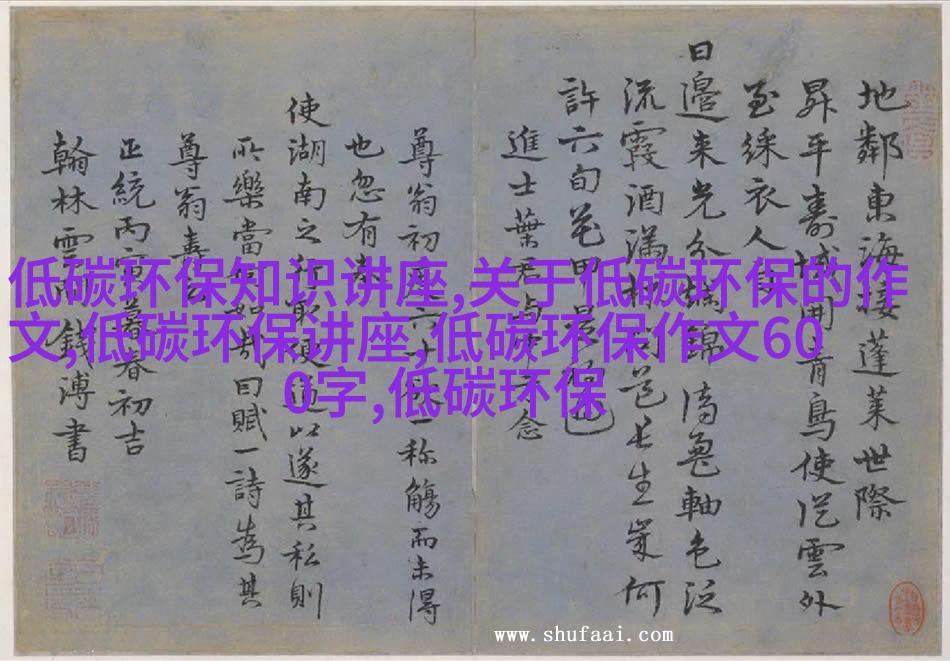 地鄰東海接蓬萊世際
昇平壽域開青鳥使從雲外
至綵衣人
日邉来光分錦龜軸色泛
流霞酒滿長生何
許六旬花甲
進士葉君不念
尊翁初六十一称觴而未得
也忽有奉
使湖南之行取便道以遂其私則
所樂當何如哉因賦一詩為其
尊翁壽
正統丙寅暮春初吉
翰林雲間錢溥書
低碳环保知识讲座,关于低碳环保的作
文,低碳环保讲座,低碳环保作文60
0字,低碳环保
www.shufaai.com